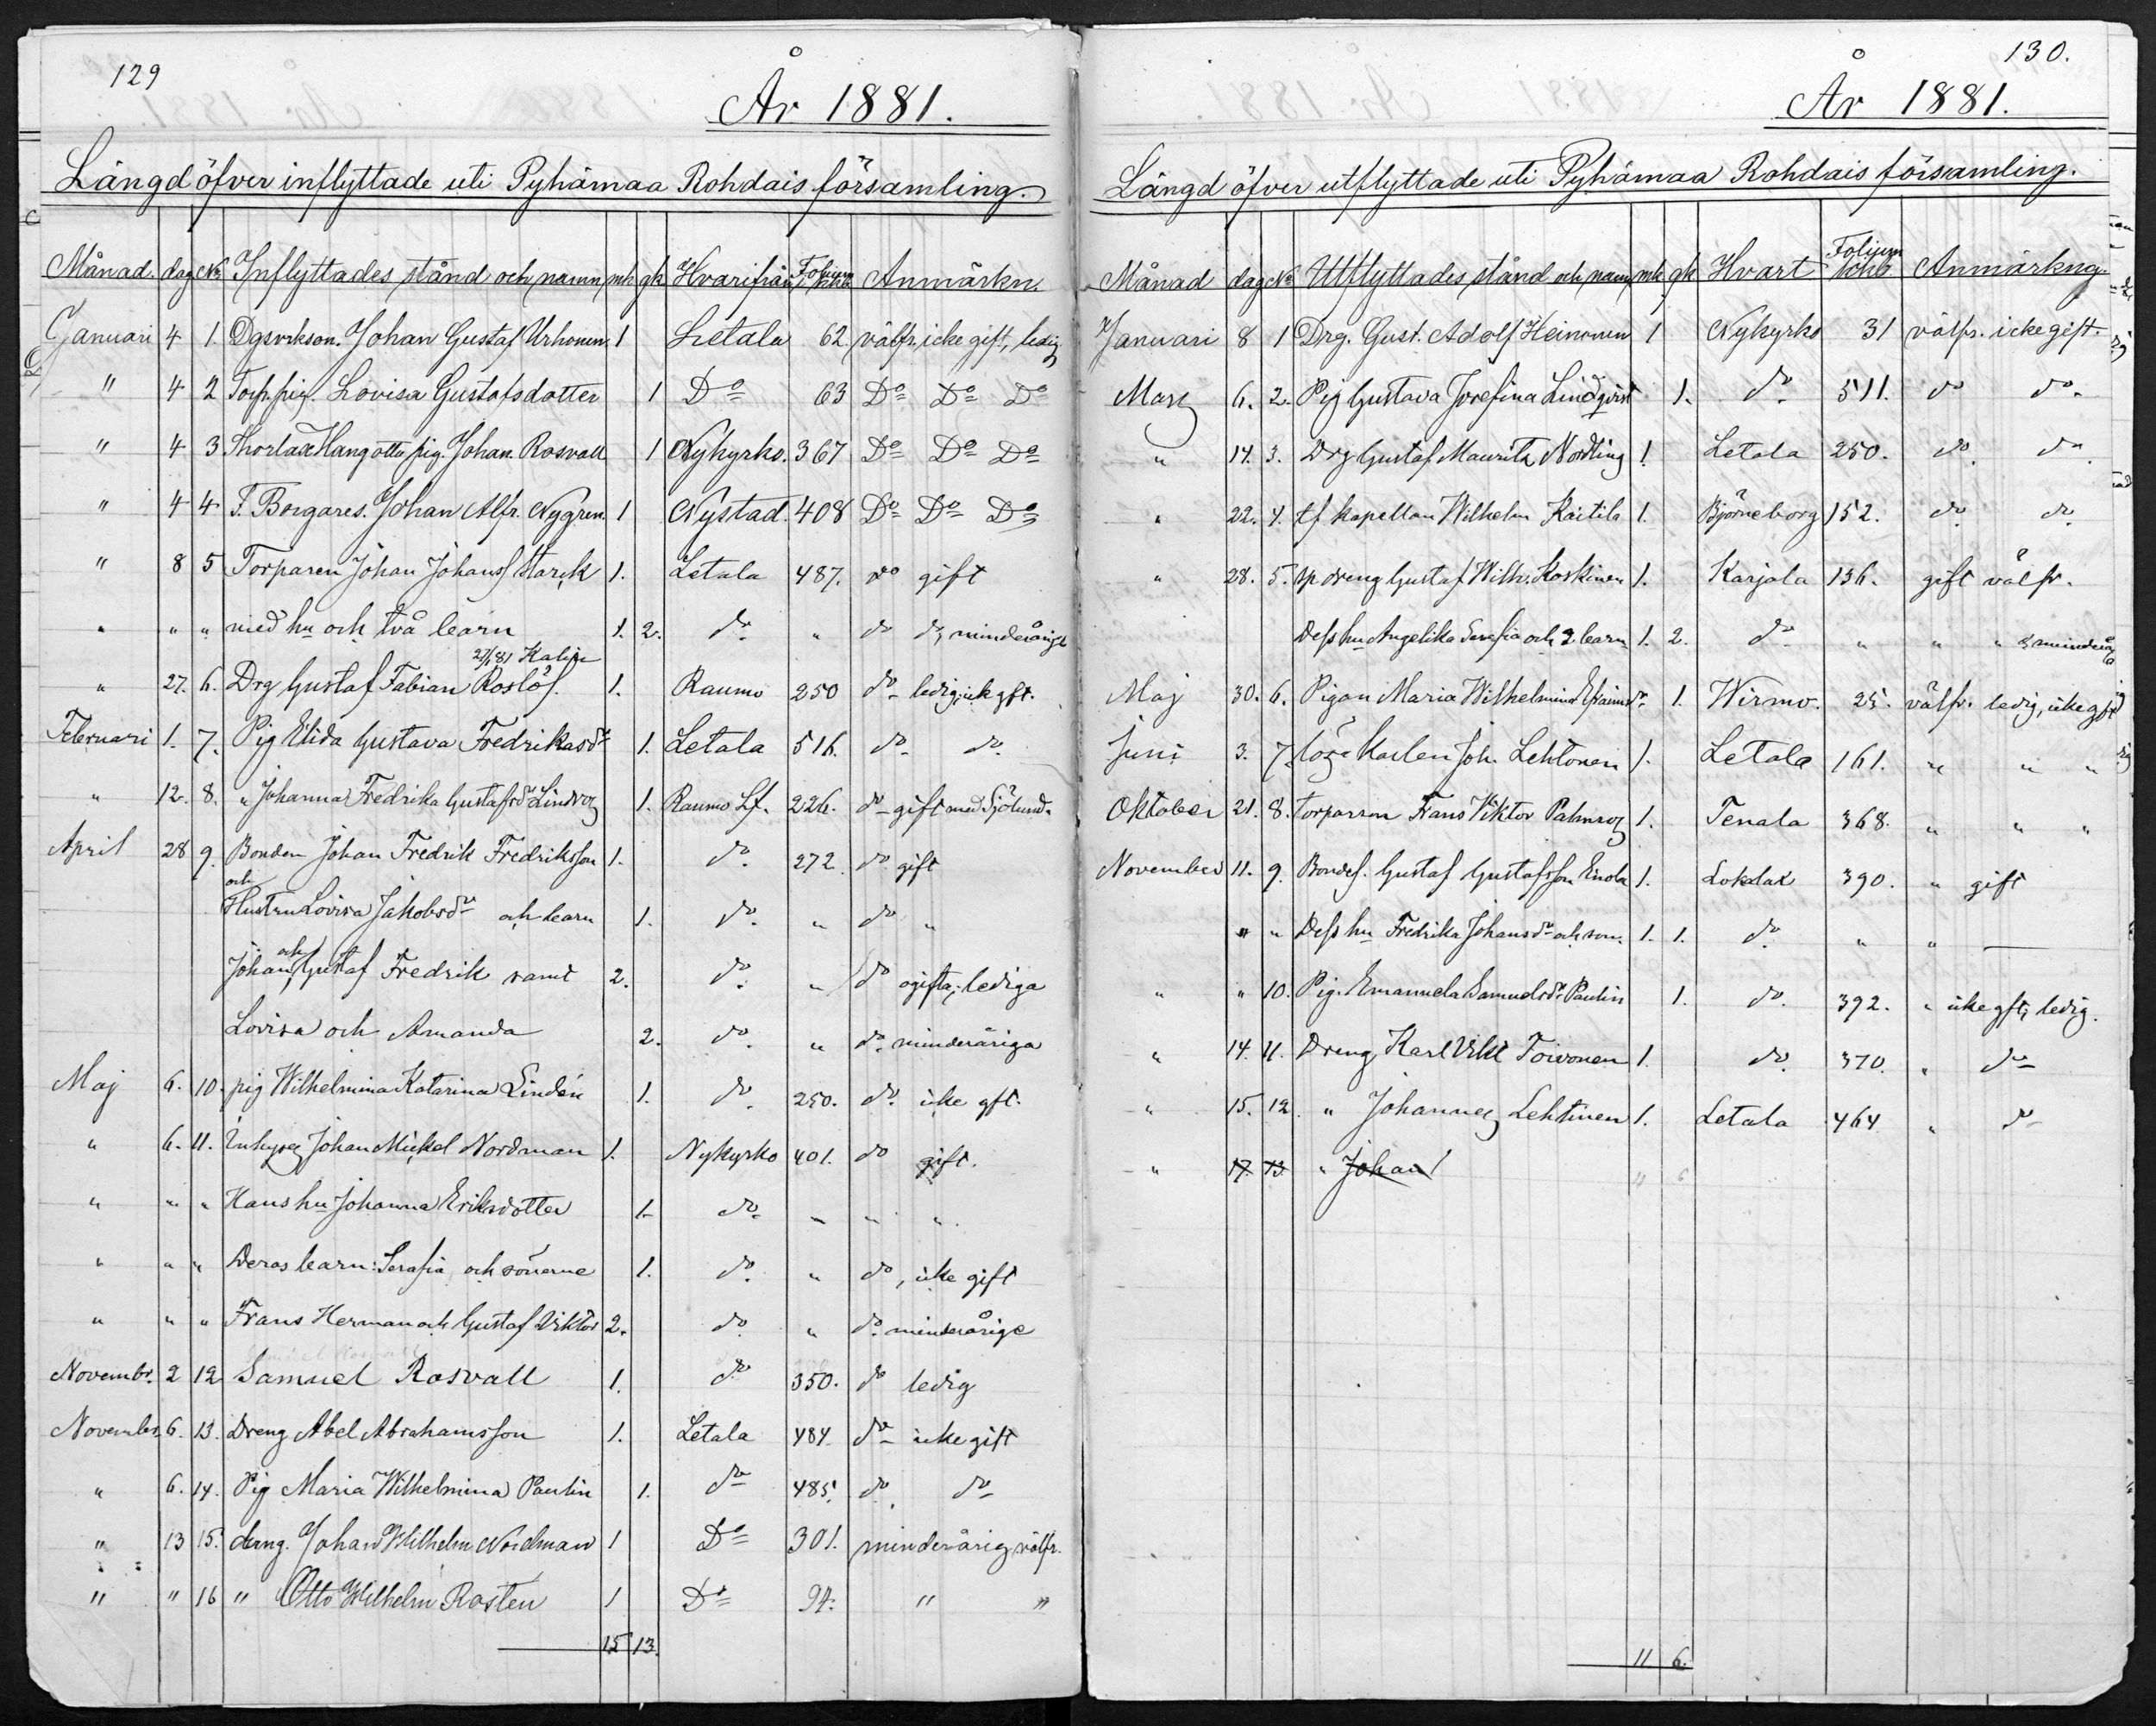 129
År 1881.
Längd öfver inflyttade uti Pyhämaa Rohdais församling.
Månad. dag No Inflyttades stånd och namn mk gk Hvarifrån Folium i kkb Anmärkn.
Januari 4 1. Johan Gustaf Urhonen. 1 Letala 62. välfr. icke gift, ledig
" 4 2 Torp. pig. Lovisa Gustafsdotter 1 Do 63 Do Do Do
" 4 3 pig. Johan. Rosvall 1 Nykyrko. 367 Do Do Do
" 4 4 F. Borgares. Johan Alfr. Nygren. 1 Nystad. 408 Do Do Do
" 8 5 Torparen Johan Johanss Starck 1. Letala 487. do gift
" " " med hu och två barn 1. 2. do " do do, minderåriga
27/1 81 Kalix
" 27. 6. Drg Gustaf Fabian Roslöf. 1. Raumo 250 do ledig, icke gft.
Februari 1. 7. Pig Elida Gustava Fredrikasdr 1. Letala 516. do do
" 12. 8. " Johanna Fredrika Gustafsdr 1. Raumo Lf. 226. do gift med Sjölund.
April 28 9. Bonden Johan Fredrik Fredriksson 1. do 272. do gift
och
Hustru Lovisa Jakobsdr och barn 1. do " do "
och
Johan, Gustaf Fredrik samt 2. do " do ogifta, lediga
Lovisa och Amanda 2. do " do minderåriga
Maj 6. 10. pig Wilhelmina Katarina Lindén 1. do 250. do icke gft.
" 6. 11. Johan Mickel Nordman 1. Nykyrko 401. do gift.
" " " Hans hu Johanna Eriksdotter 1. do " " "
" " " Deras barn: Serafia och sönerne 1. do " do, icke gift
" " " Frans Herman och Gustaf Viktor 2. do " do minderårige
Novembr. 2 12 Samuel Rosvall 1. do 350. do ledig
November 6. 13. Dreng Abel Abrahamsson 1. Letala 484. do icke gift
" 6. 14. Pig Maria Wilhelmina Paulin 1. do 485. do do
" 13 15. dreng. Johan Wilhelm Nordman 1 Do 301. minderårig, välfr.
" " 16 " Otto Wilhelm Rosten 1 Do 94. " "
15 13.
130.
År 1881.
Längd öfver utflyttade uti Pyhämaa Rohdais församling.
Månad dag No Utflyttades stånd och namn mk gk Hvart Folium i kkb Anmärkng.
Januari 8 1 Drg. Gust. Adolf Heinonen 1 Nykyrko 31 välfr. icke gift.
Mars 6. 2. Pig Gustava Josefina Lindqvist 1. do 511. do do
" 14. 3. Drg Gustaf Maurits Nordling 1. Letala 250. do do
" 22. 4. tf kapellan Wilhelm Kaitila 1. Björneborg 152. do do
" 28. 5. dreng Gustaf Wilh. Koskinen 1. Karjala 136. gift välfr.
Dess hu Angelika Serafia och 2 barn 1. 2. do " " "
Maj 30. 6. Pigan Maria Wilhelmina Efraimsdr 1. Wirmo. 25. välfr. ledig, icke gft
Juni 3. 7. Joh. Lehtonen 1. Letala 161. " " "
Oktober 21. 8. torparson Frans Viktor Palmroz 1. Tenala 368. " " "
November 11. 9. Bondes. Gustaf Gustafsson Enola 1. Lokalax 390. " gift
" " Dess hu Fredrika Johansdr och son. 1. 1. do " "
" " 10. Pig. Emanuela Samuelsdr Paulin 1. do 392. " icke gft, ledig.
" 14. 11. Dreng Karl Vikt Toivonen 1. do 370. " do
" 15. 12. " Johannes Lehtinen 1. Letala 464 " do
" 17. 13. " Johan
11 6.